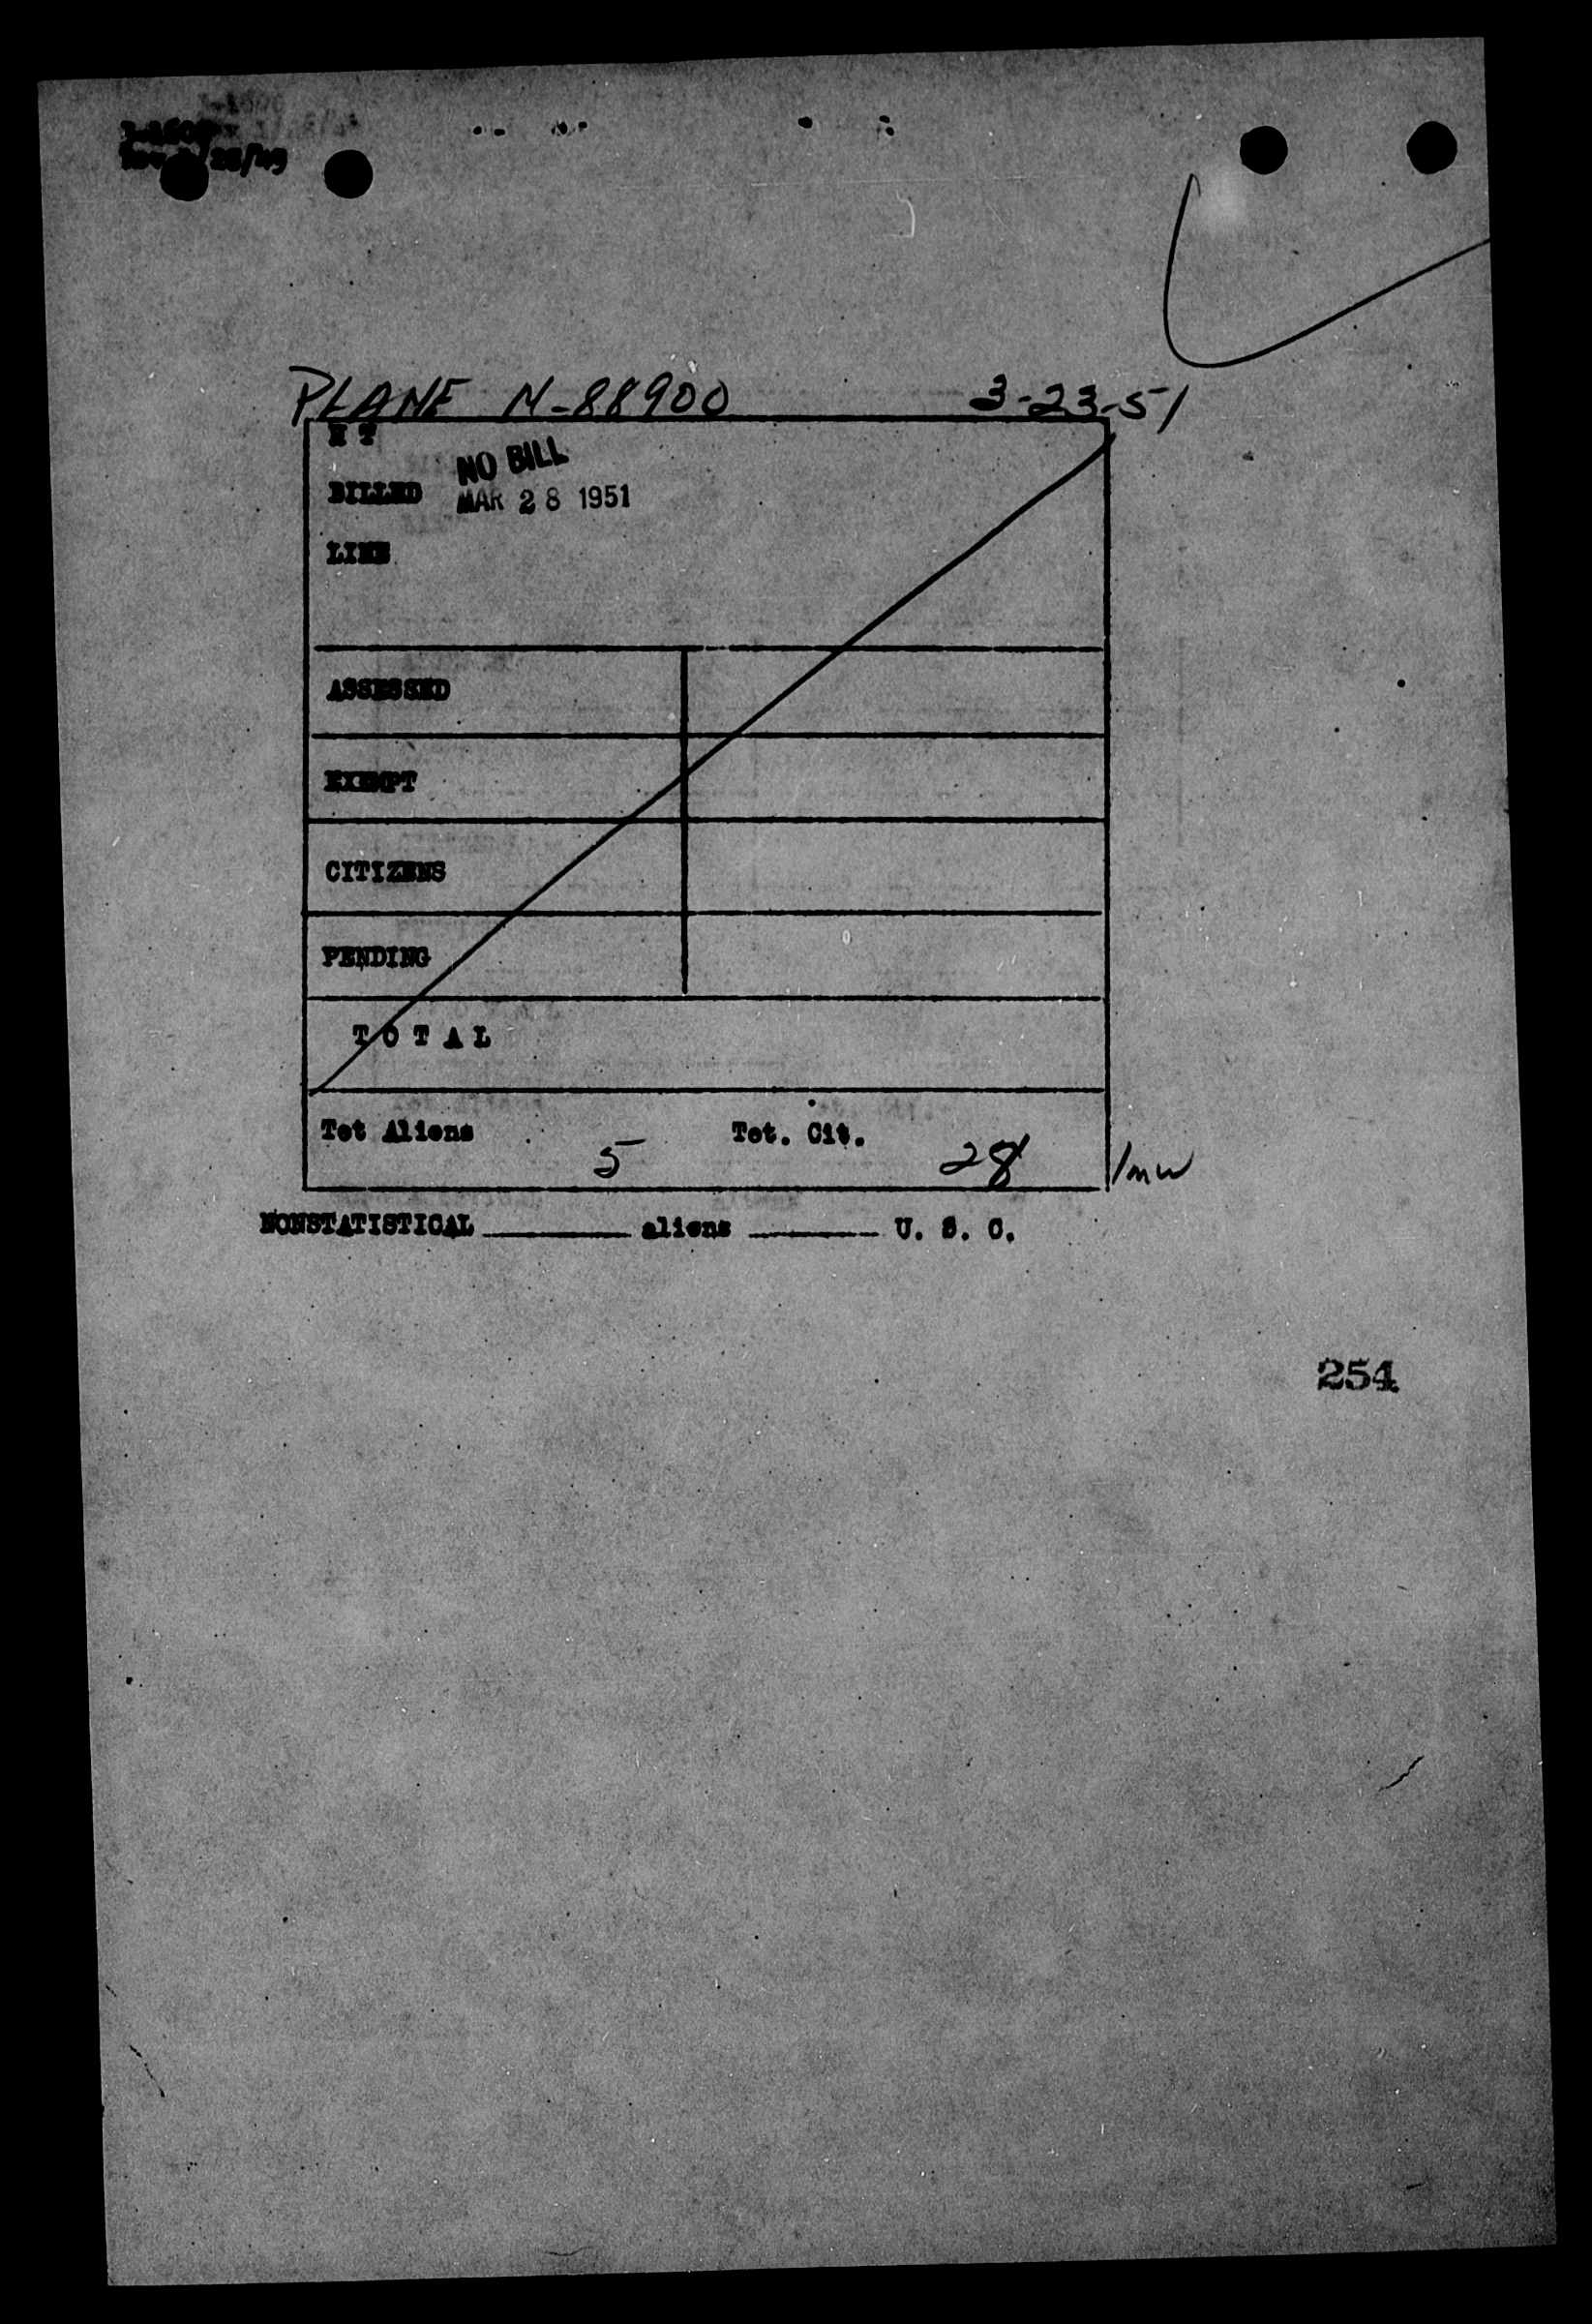 PLANE N-88900 3-23-51
H T
NO BILL
BILLED MAR 28 1951
LINE
ASSESSED
EXEMPT
CITIZENS
PENDING
TOTAL
Tot Aliens 5 Tot. Cit. 28 /mw
NONSTATISTICAL ________ aliens ________ U. S. C.
254